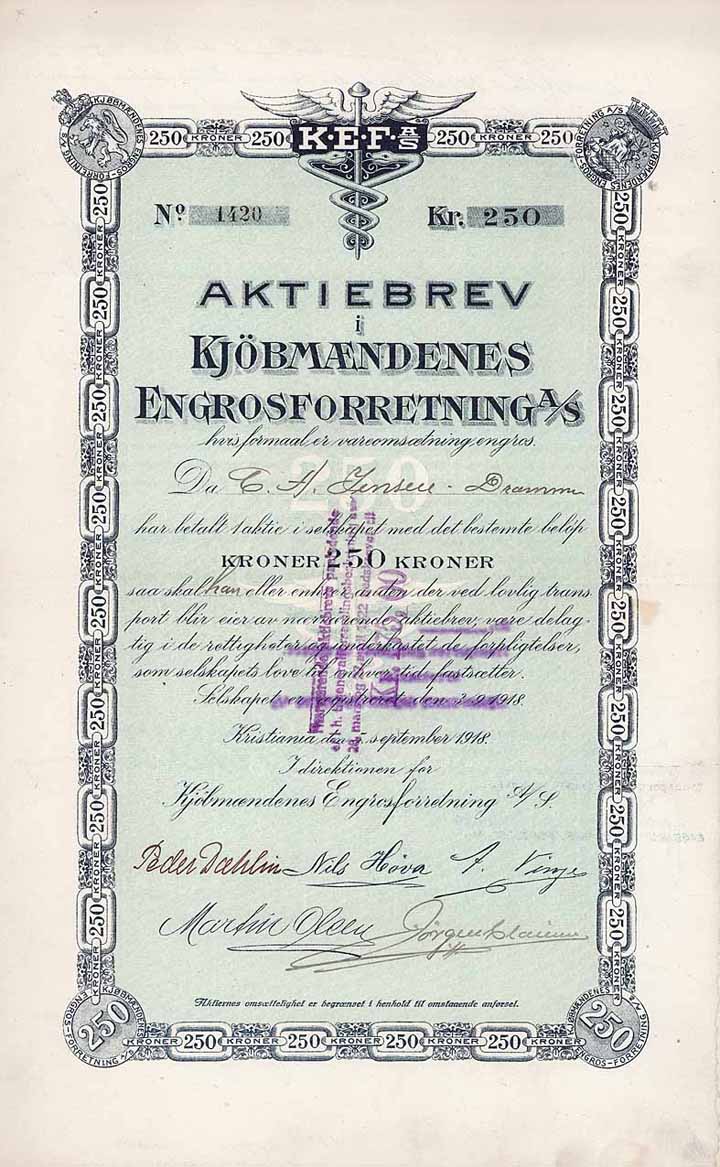 K·E·F A/S
KJØBMÆNDENES ENGROS-FORRETNING A/S
KJØBMÆNDENES ENGROS-FORRETNING A/S
250 KRONER 250 250 KRONER 250
Nº 1420 Kr. 250
AKTIEBREV
i
KJÖBMÆNDENES
ENGROSFORRETNING A/S
hvis formaal er vareomsætning engros.
250
Da C. A. Jensen - Drammen
har betalt 1 aktie i selskapet med det bestemte beløp
KRONER 250 KRONER
saa skal han eller enhver anden der ved lovlig trans
port blir eier av nærværende aktiebrev, være delag-
tig i de rettigheter og underkastet de forpligtelser,
som selskapets love til enhver tid fastsætter.
Selskapet er registreret den 3.9.1918.
Kristiania den september 1918.
I direktionen for
Kjöbmændenes Engrosforretning A/S.
Peder Dæhlin Nils Høva A. Vinje
Martin Olsen Jörgen
Aktiernes omsættelighet er begrænset i henhold til omstaaende anførsel.
KJØBMÆNDENES ENGROS-FORRETNING A/S 250
250 KRONER 250 KRONER 250 KRONER 250 KRONER 250 KRONER 250
KJØBMÆNDENES ENGROS-FORRETNING A/S 250